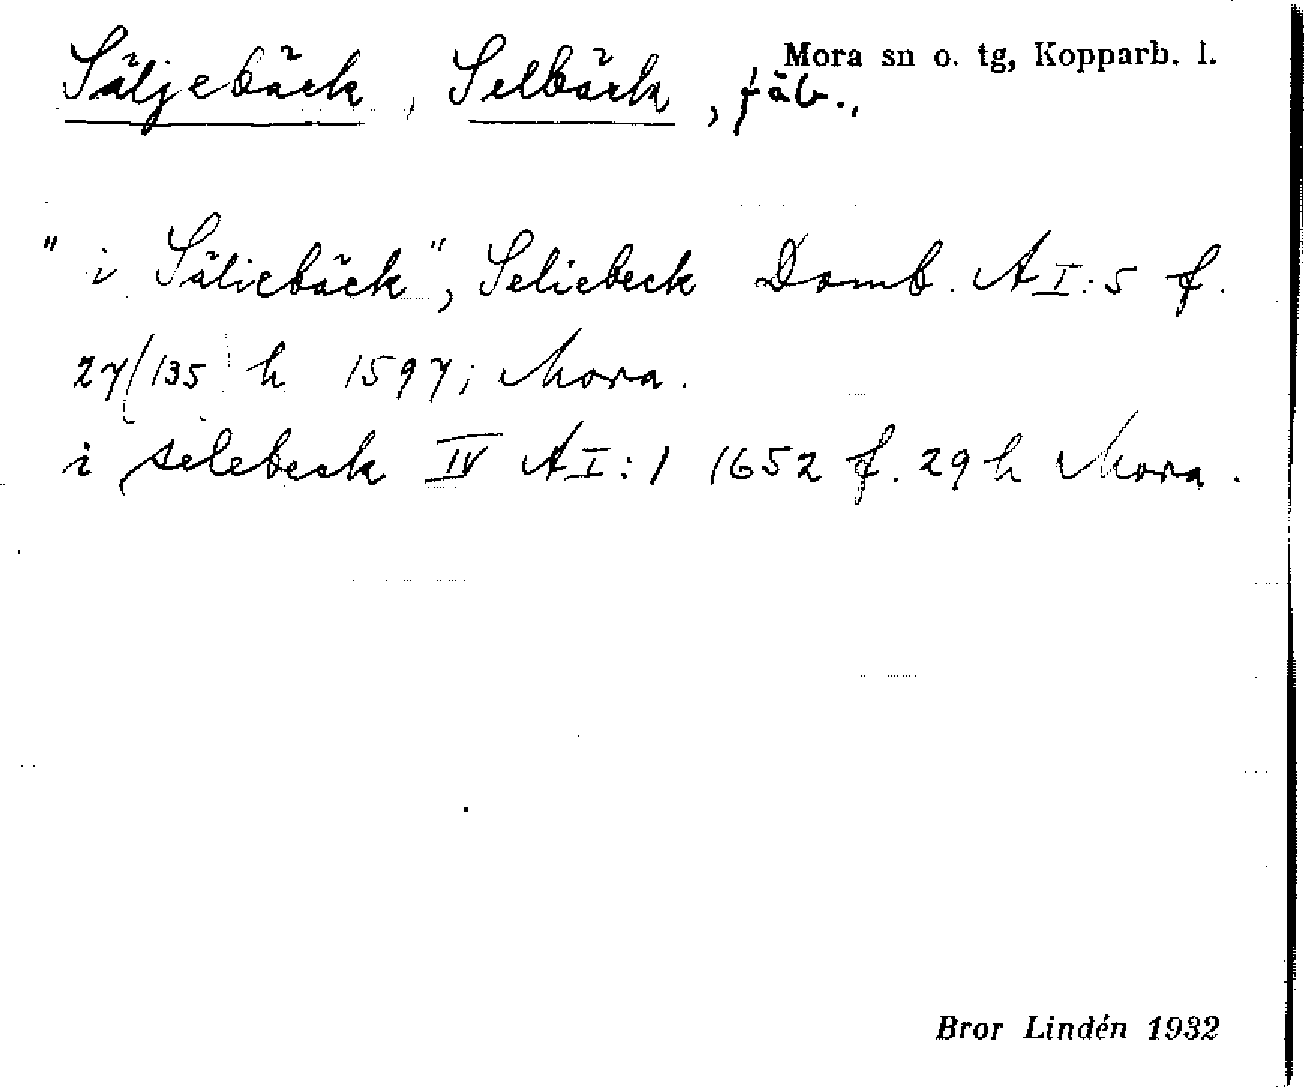 Mora sn o. tg, Kopparb. l.
Säljebäck, Selbäck, fäb.,
" i Säliebäck", Seliebeck Domb. AI:5 f.
27/135 h 1597; Mora.
i selebeck IV AI:1 1652 f. 29 h Mora.
Bror Lindén 1932